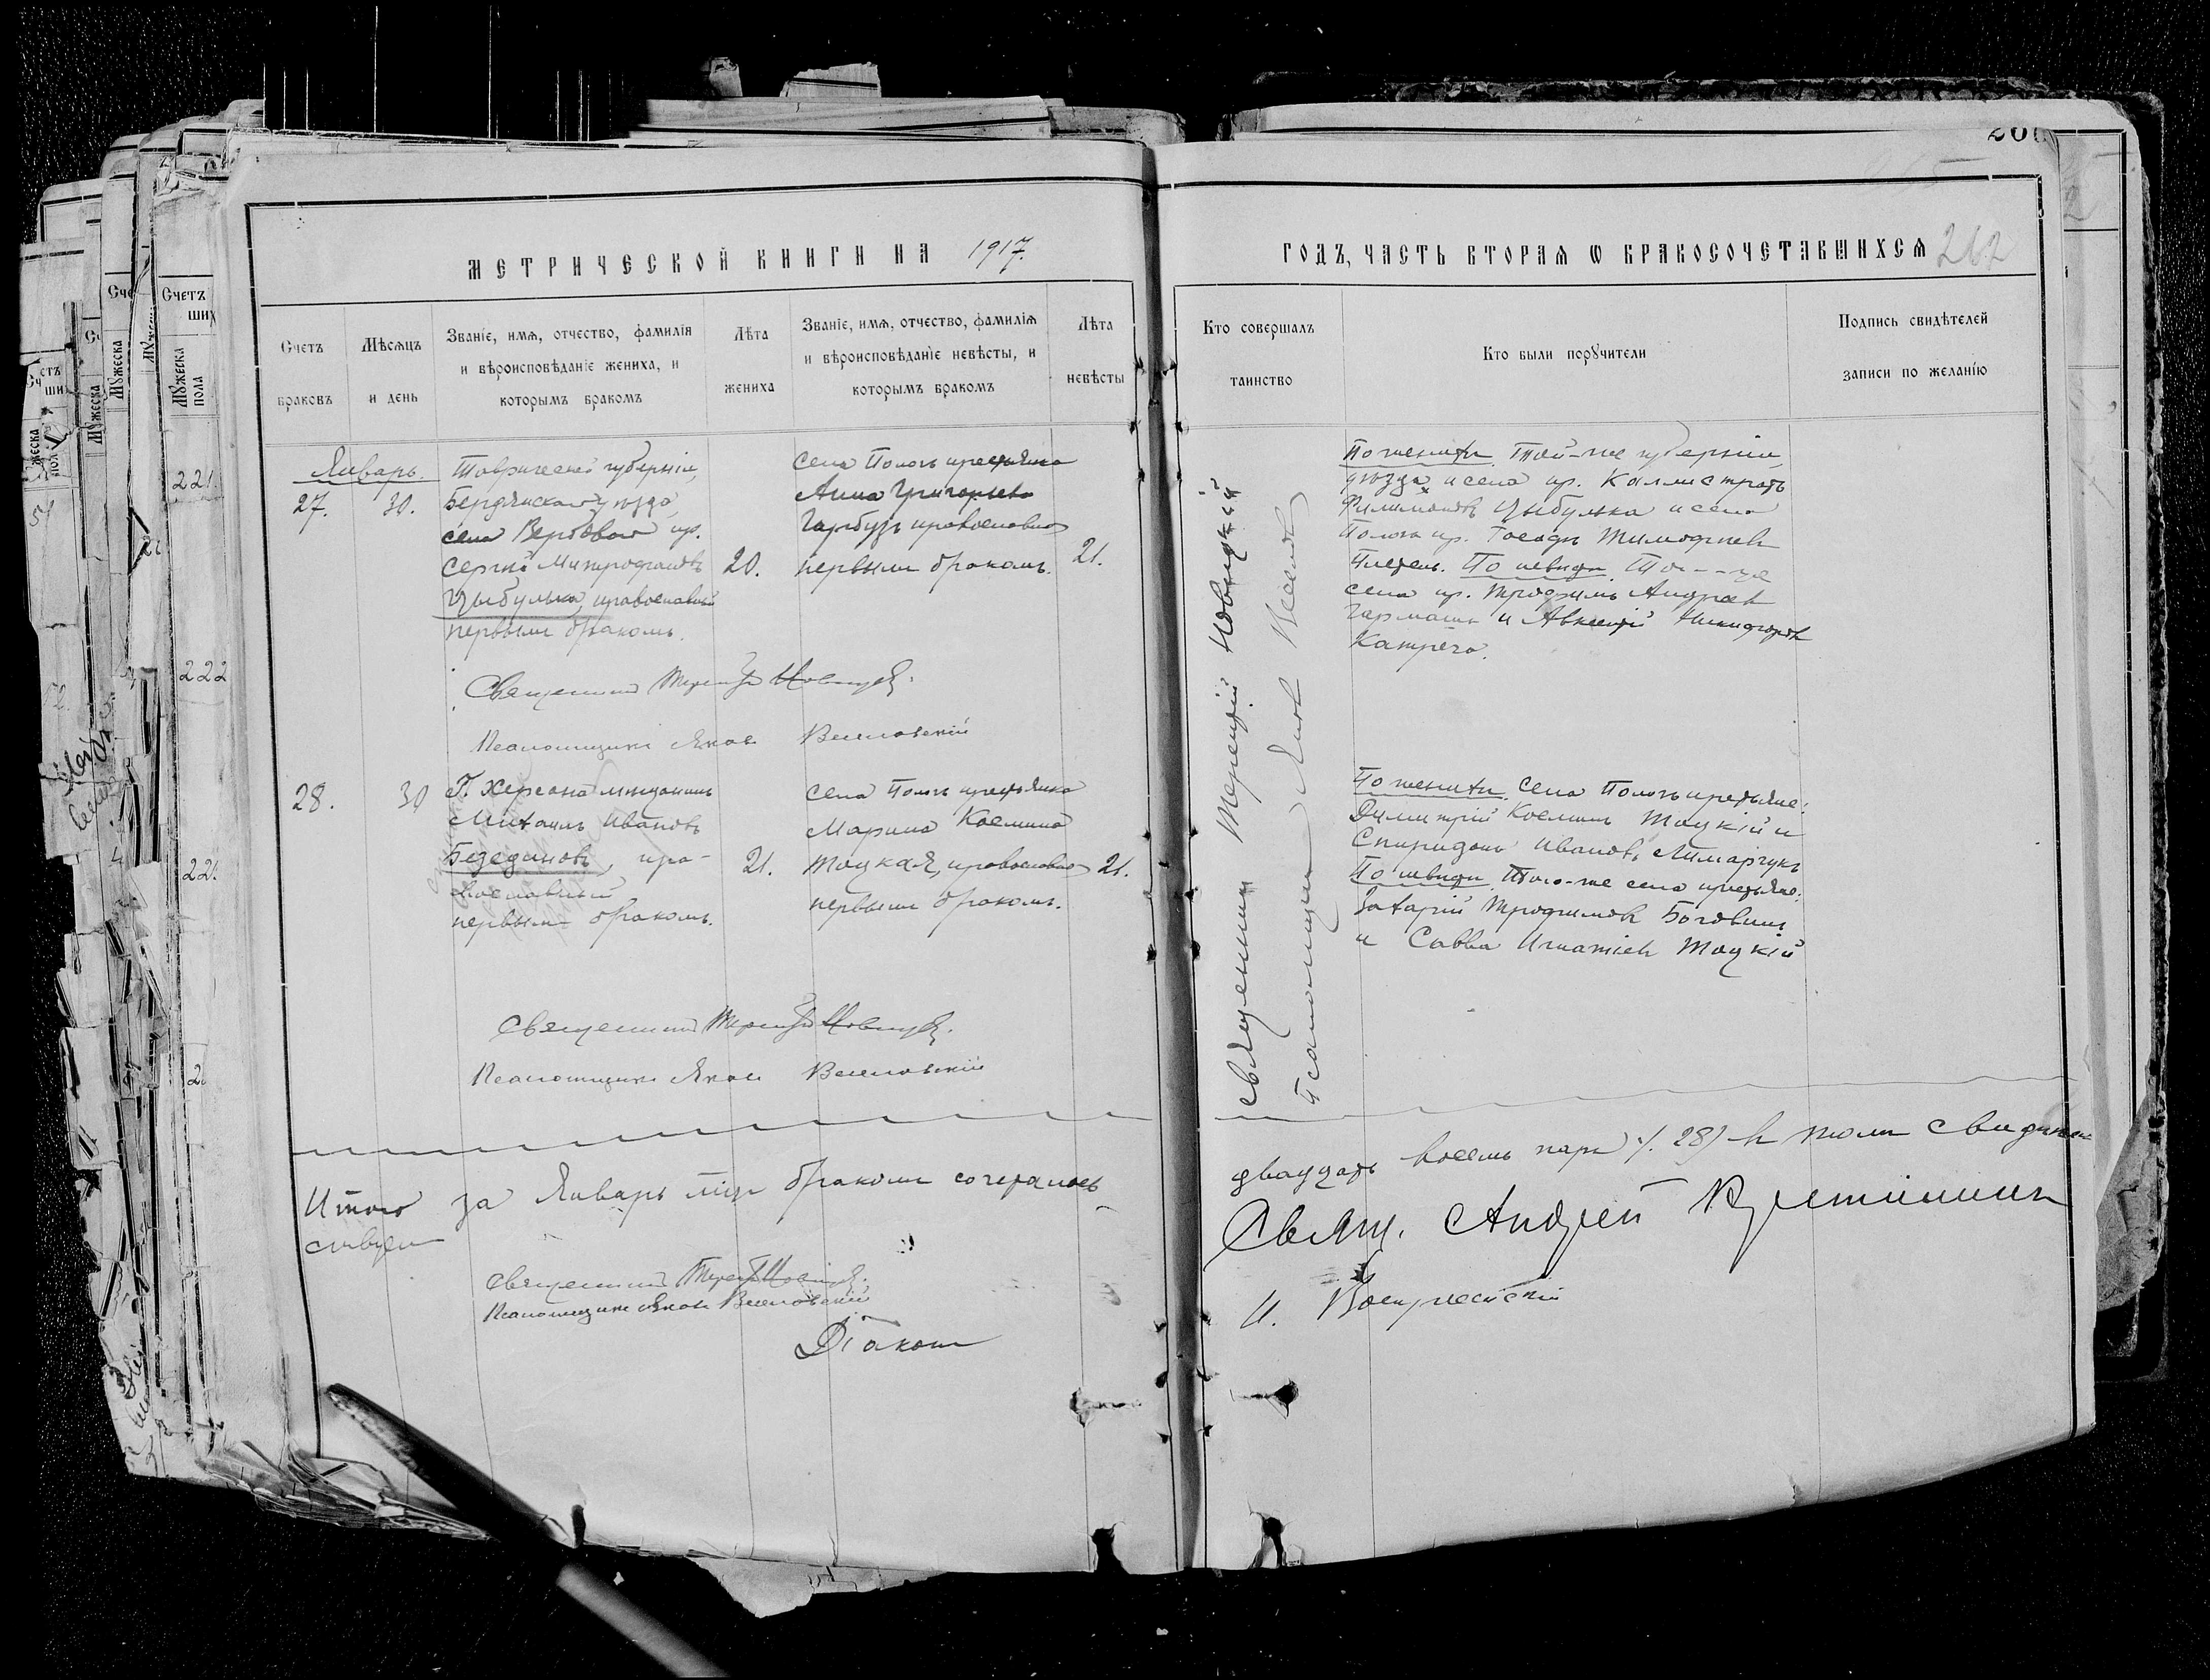 МЕТРИЧЕСКОЙ КНИГИ НА 1917.
Счетъ браковъ
Мѣсяцъ и день
Званіе, имя, отчество, фамилія
и вѣроисповѣданіе жениха, и
которымъ бракомъ
Лѣта жениха
Званіе, имя, отчество, фамилія
и вѣроисповѣданіе невѣсты, и
которымъ бракомъ
Лѣта невѣсты
Январь.
27.
30.
Таврической губерніи,
Бердянскаго уѣзда,
села Вербоваго кр.
Сергій Митрофановъ
Цыбулька, православный
первымъ бракомъ.
20.
села Пологъ крестьянка
Анна Григорьева
Гарбузъ православная
первымъ бракомъ.
21.
Священникъ Терентій Новицкій.
Псаломщикъ Яковъ Веселовскій
28.
30
Г. Херсона мѣщанинъ
Михаилъ Ивановъ
Безединовъ, пра-
вославный
первымъ бракомъ.
21.
села Пологъ крестьянка
Марина Космина
Тоцкая, православная
первымъ бракомъ.
21.
Священникъ Терентій Новицкій.
Псаломщикъ Яковъ Веселовскій
Итого за Январь мѣс. бракомъ сочеталось
Священникъ Терентій Новицкій.
Псаломщикъ Яковъ Веселовскій
Діаконъ
ГОДЪ, ЧАСТЬ ВТОРАЯ Ѡ БРАКОСОЧЕТАВШИХСЯ 262
Кто совершалъ таинство
Кто были поручители
Подпись свидѣтелей
записи по желанію
Священникъ Терентій Новицкій
Псаломщикъ Яковъ Веселов
По женихѣ. Той-же губерніи,
уѣзда и села кр. Каллистратъ
Филимоновъ Цыбулька и села
Пологъ кр. Тимофеевъ
По невѣстѣ. То--же
села кр. Трофимъ Андреевъ
Гармашъ и Авксентій Никифоровъ
По женихѣ. Села Пологъ крестьяне:
Димитрій Косминъ Тоцкій и
Спиридонъ Ивановъ Лимарчукъ
По невѣстѣ. Того-же села крестьяне:
Захарій Трофимовъ Боговинъ
и Савва Игнатіевъ Тоцкій
двадцать восемь паръ /28/ въ томъ
Свящ. Андрей
И. Воскресенскій
221
222